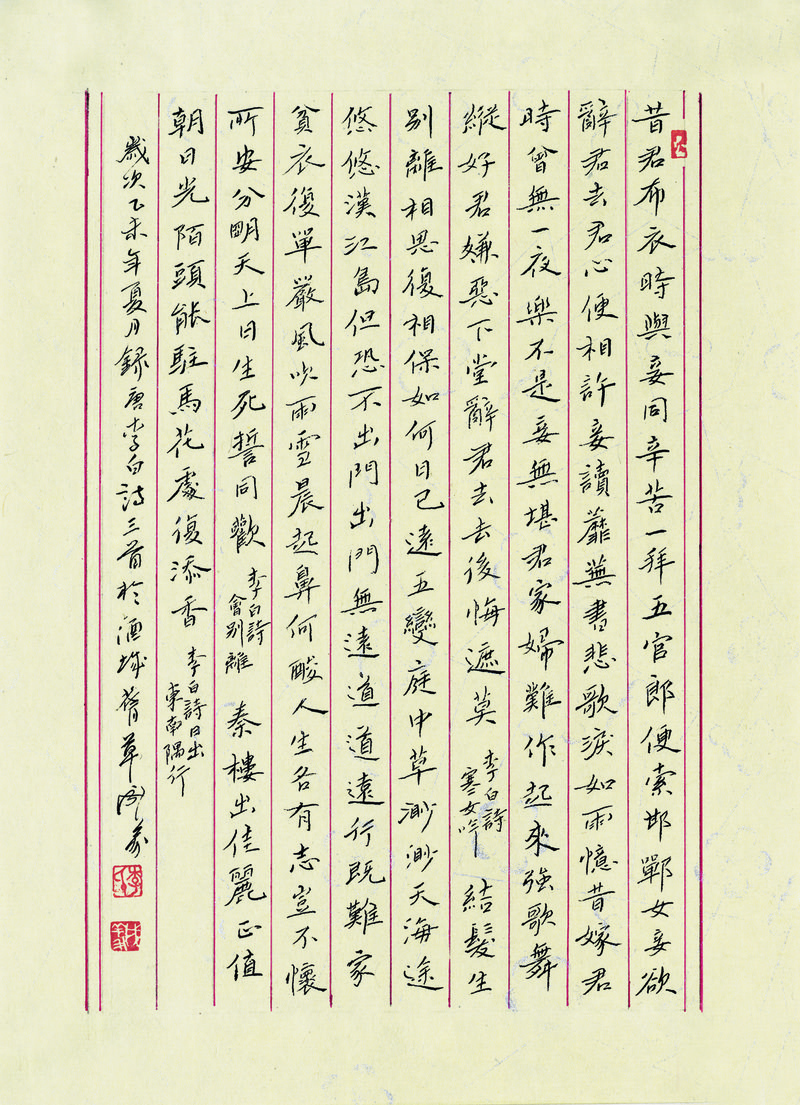 昔君布衣時與妾同辛苦一拜五官郎便索邯鄲女妾欲
辭君去君心便相許妾讀蘼蕪書悲歌淚如雨憶昔嫁君
時曾無一夜樂不是妾無堪君家婦難作起來強歌舞
縱好君嫌惡下堂辭君去去後悔遮莫 李白詩寒女吟 結髮生
別離相思復相保如何日已遠五變庭中草渺渺天海途
悠悠漢江島但恐不出門出門無遠道道遠行既難家
貧衣復單嚴風吹雨雪晨起鼻何酸人生各有志豈不懷
所安分明天上日生死誓同歡 李白詩會別離 秦樓出佳麗正值
朝日光陌頭能駐馬花處復添香 李白詩日出東南隅行
歲次乙未年夏月錄唐李白詩三首於酒城